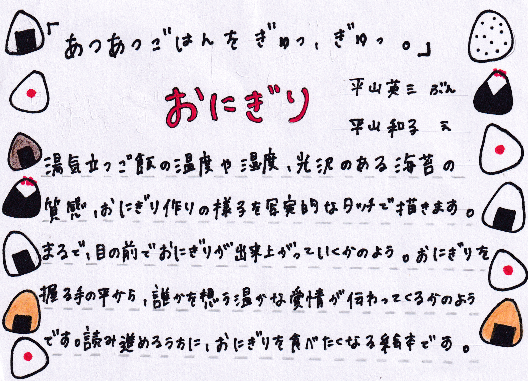 「あつあつごはんを ぎゅっ、ぎゅっ。」
おにぎり
平山英三 ぶん
平山和子 え
湯気立つご飯の温度や湿度、光沢のある海苔の
質感、おにぎり作りの様子を写実的なタッチで描きます。
まるで、目の前でおにぎりが出来上がっていくかのよう。おにぎりを
握る手の平から、誰かを想う温かな愛情が伝わってくるかのよう
です。読み進めるうちに、おにぎりを食べたくなる絵本です。